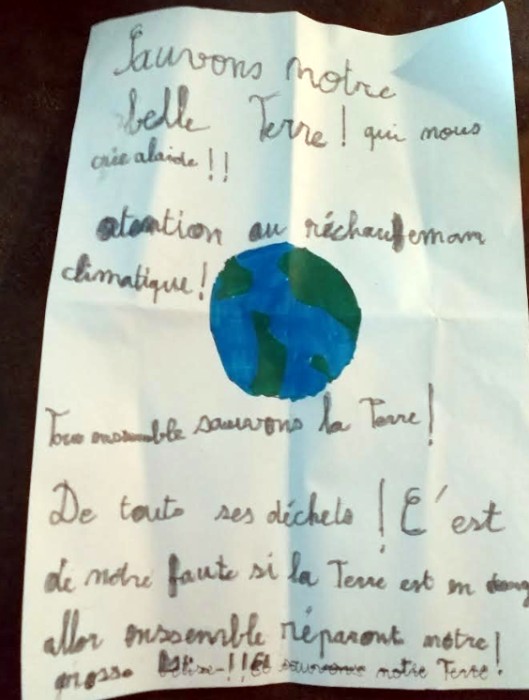 Sauvons notre
belle Terre ! qui nous
crie alaide !!
atention au réchaufeman
climatique !
Tous enssemble sauvons la Terre !
De touts ses déchets ! C'est
de notre faute si la Terre est en
aller enssemble réparont notre !
grosse bétise-!! Et sauvons notre Terre !